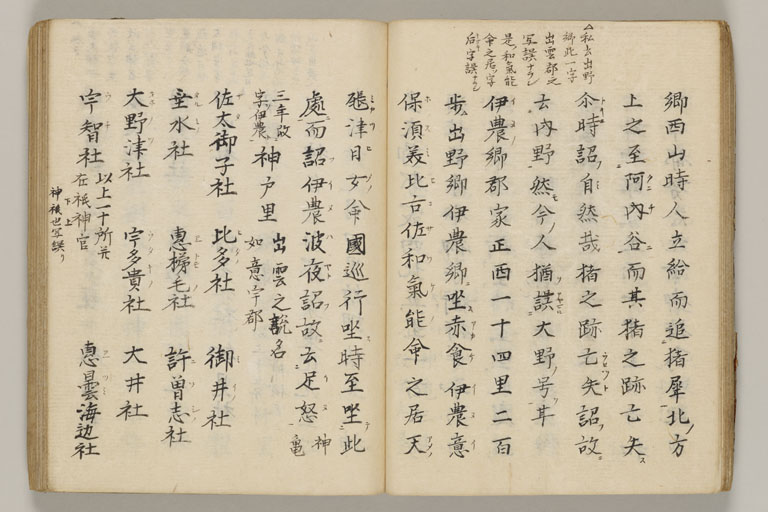 △私云出野
郷此一字
出雲郡之
写誤ナラン
是和氣能
命之居ノ字
后ノ字誤ナラン
郷西山時人立給而追猪犀北方
上之至阿内谷而其猪之跡亡失
尒時詔自然哉猪之跡亡失詔故
云内野然今人猶誤大野号耳
伊農郷郡家正西一十四里二百
歩出野郷伊農郷坐赤食伊農意
保須美比古佐和氣能命之居天
𤭖津日女命國巡行坐時至坐此
處而詔伊農波夜詔故云足怒 神亀
三年改
字伊農 神戸里 出雲之説名
如意宇郡
佐太御子社 比多社 御井社
垂水社 惠梯毛社 許曽志社
大野津社 宇多貴社 大井社
宇智社 以上一十所并
在祇神官 惠曇海边社
神祇也写誤リ
下上